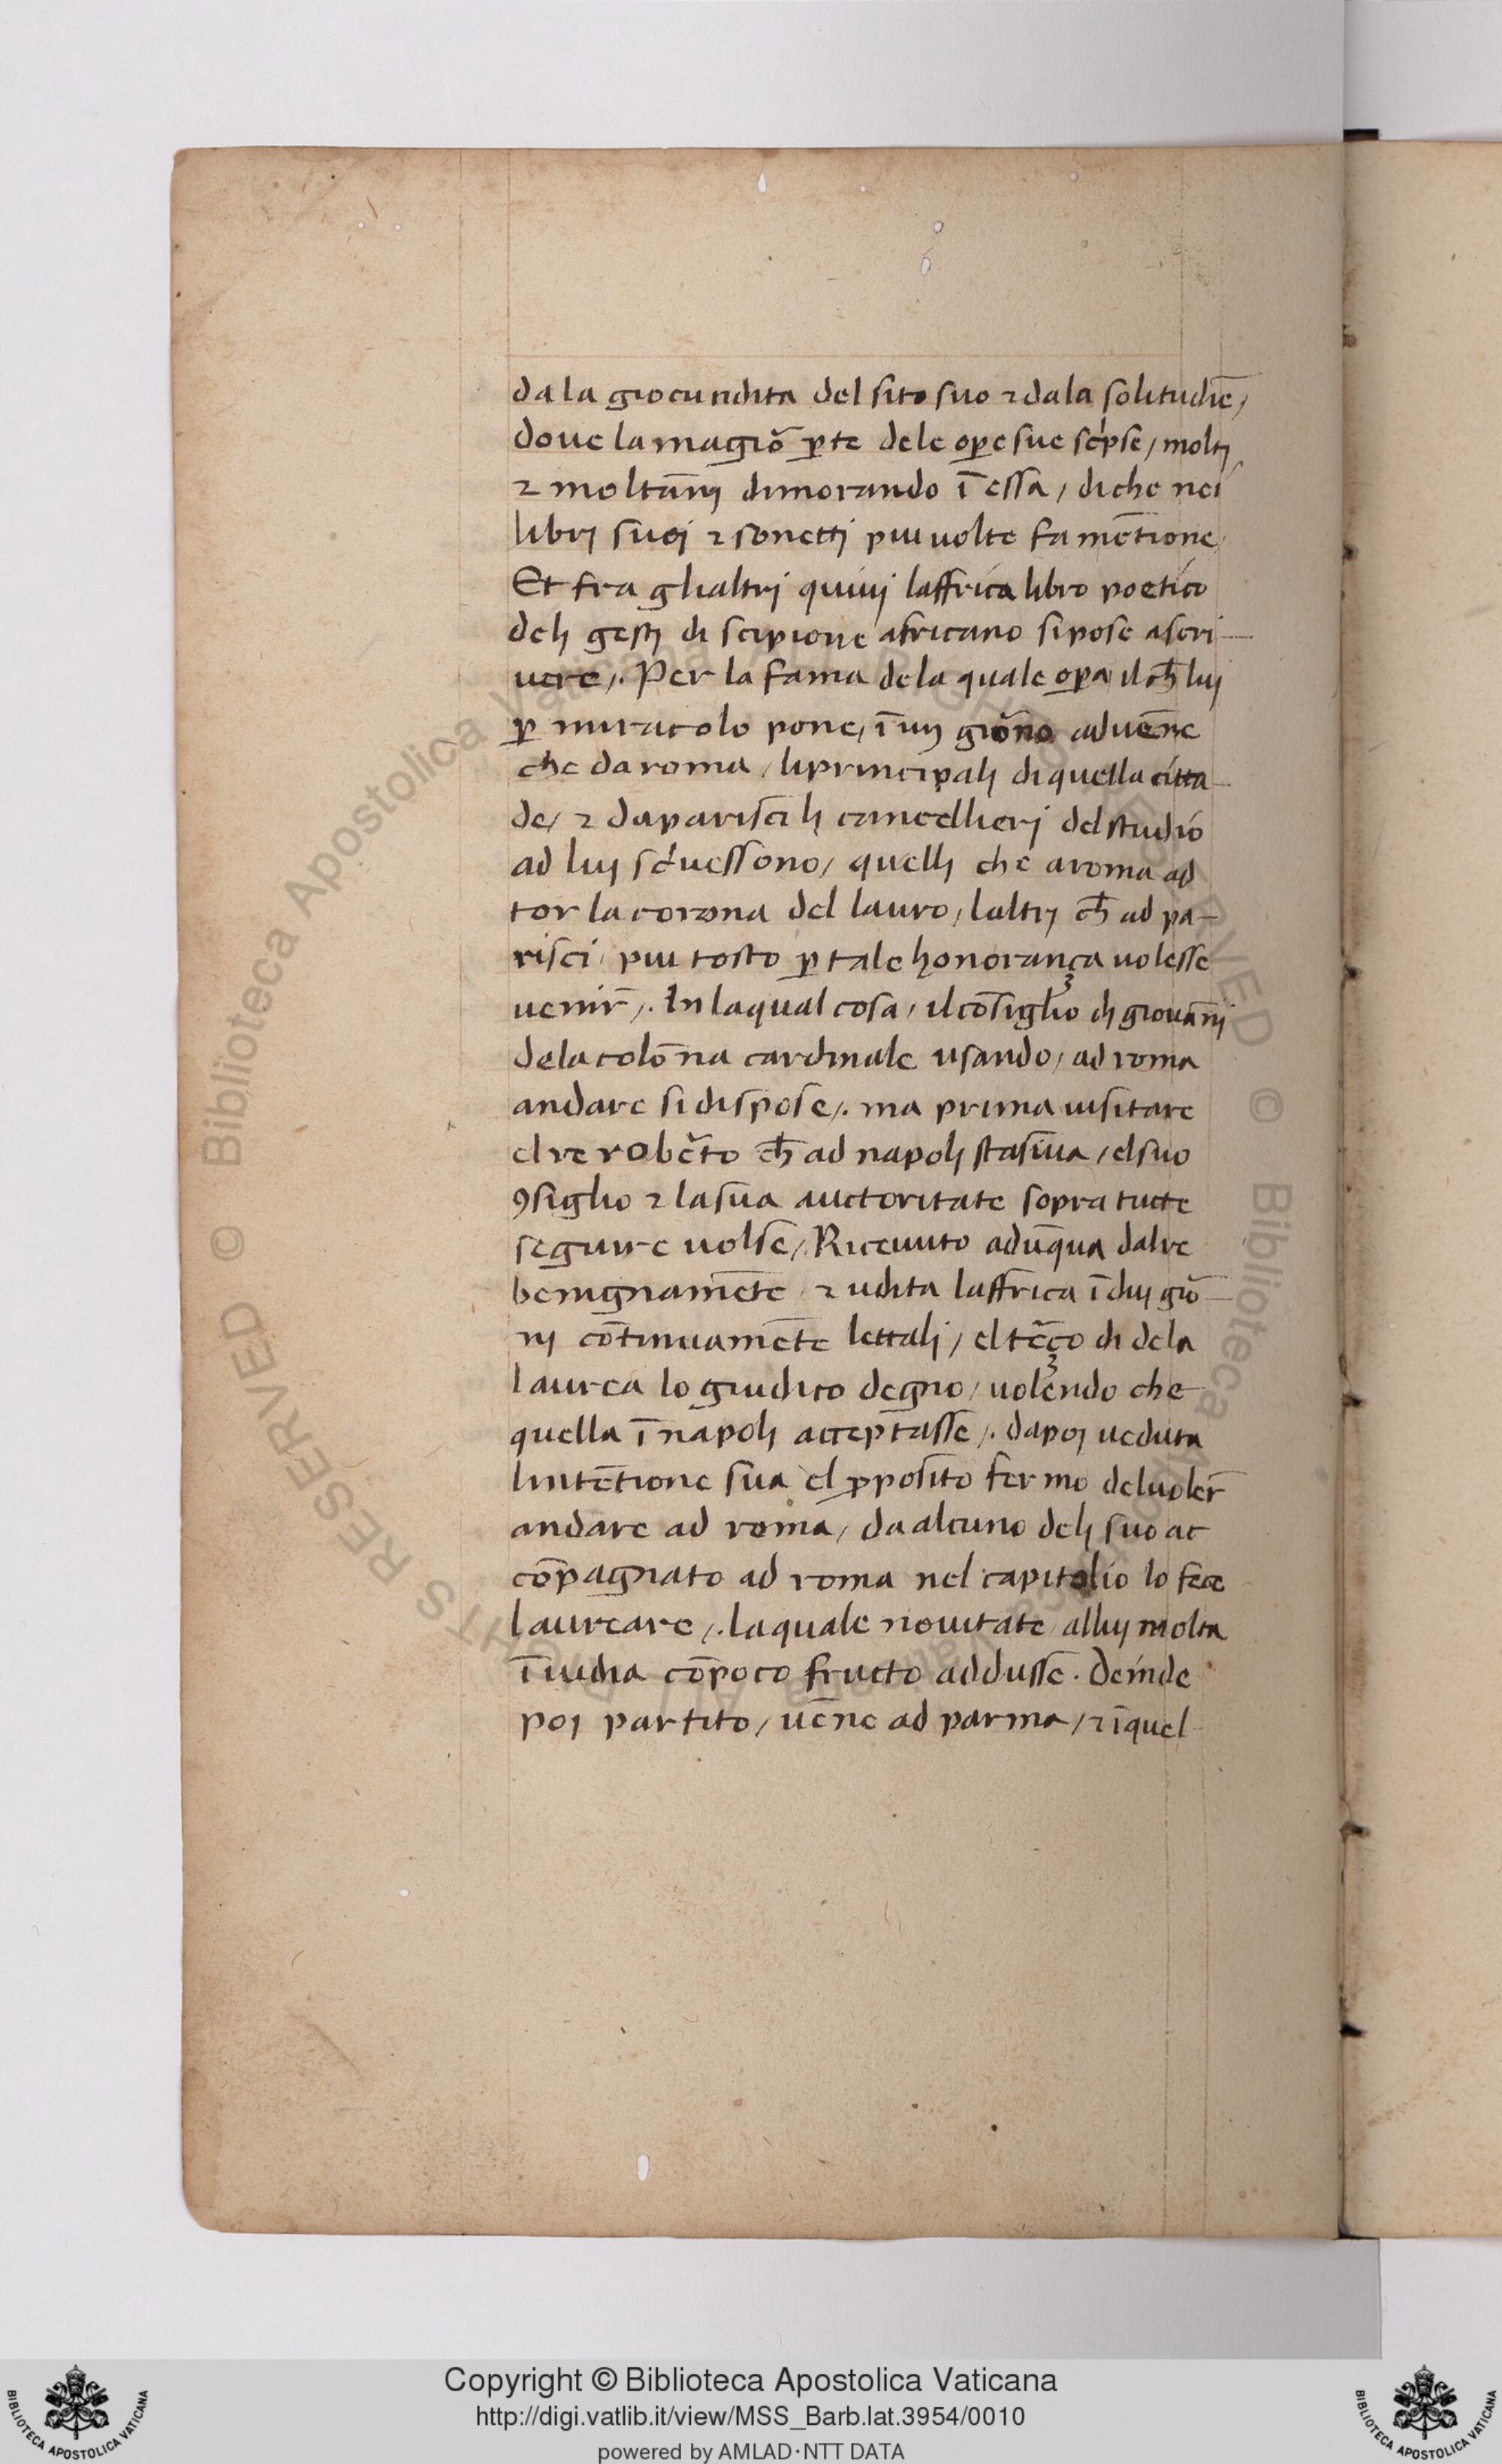 dala giocundita del sito suo ⁊ dala solitudīe/
doue la magiō ꝑte dele oꝑe sue sc'pse/ molti
⁊ molt āni dimorando ī essa / di che nei
libri suoi ⁊ sonetti piu uolte fa mētione
Et fra glialtri quiui laffrica libro poetico
deli gesti di scipione africano si pose ascri-
uere/. Per la fama dela quale oꝑa il ch̄ lui
ꝑ miracolo pone/ ī un giōno aduēne
che da roma / li principali di quella citta-
de/ ⁊ da parisci li cancellieri del studio
ad lui sc'uessono/ quelli che a roma ad
tor la corona del lauro/ laltri ch̄ ad pa-
risci piu tosto ꝑ tale honorança uolesse
uenir̄/. In laqual cosa / il cōsiglio di giouāni
dela colōna cardinale usando/ ad roma
andare si dispose/. ma prima uisitare
el re rob̄to ch̄ ad napoli stasiua / el suo
ꝯsiglio ⁊ la sua auctoritate sopra tucte
seguire uolse/. Riceuuto adūqua dal re
benignamēte ⁊ udita laffrica ī dui giō-
ni cōtinuamēte lettali / el t̄ço di dela
laurea lo giudico degno / uolendo che
quella ī napoli acceptasse/. dapoi ueduta
lintētione sua el ꝓposito fermo del uoler̄
andare ad roma/ da alcuno deli suo ac
cōpagnato ad roma nel capitolio lo fece
laureare/. la quale nouitate allui molta
īuidia cō poco fructo addusse . Deinde
poi partito/ uēne ad parma / ⁊ ī quel
Copyright © Biblioteca Apostolica Vaticana
http://digi.vatlib.it/view/MSS_Barb.lat.3954/0010
powered by AMLAD·NTT DATA